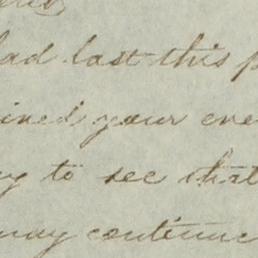 had last this p
ined your eve
ng to see that
may continue